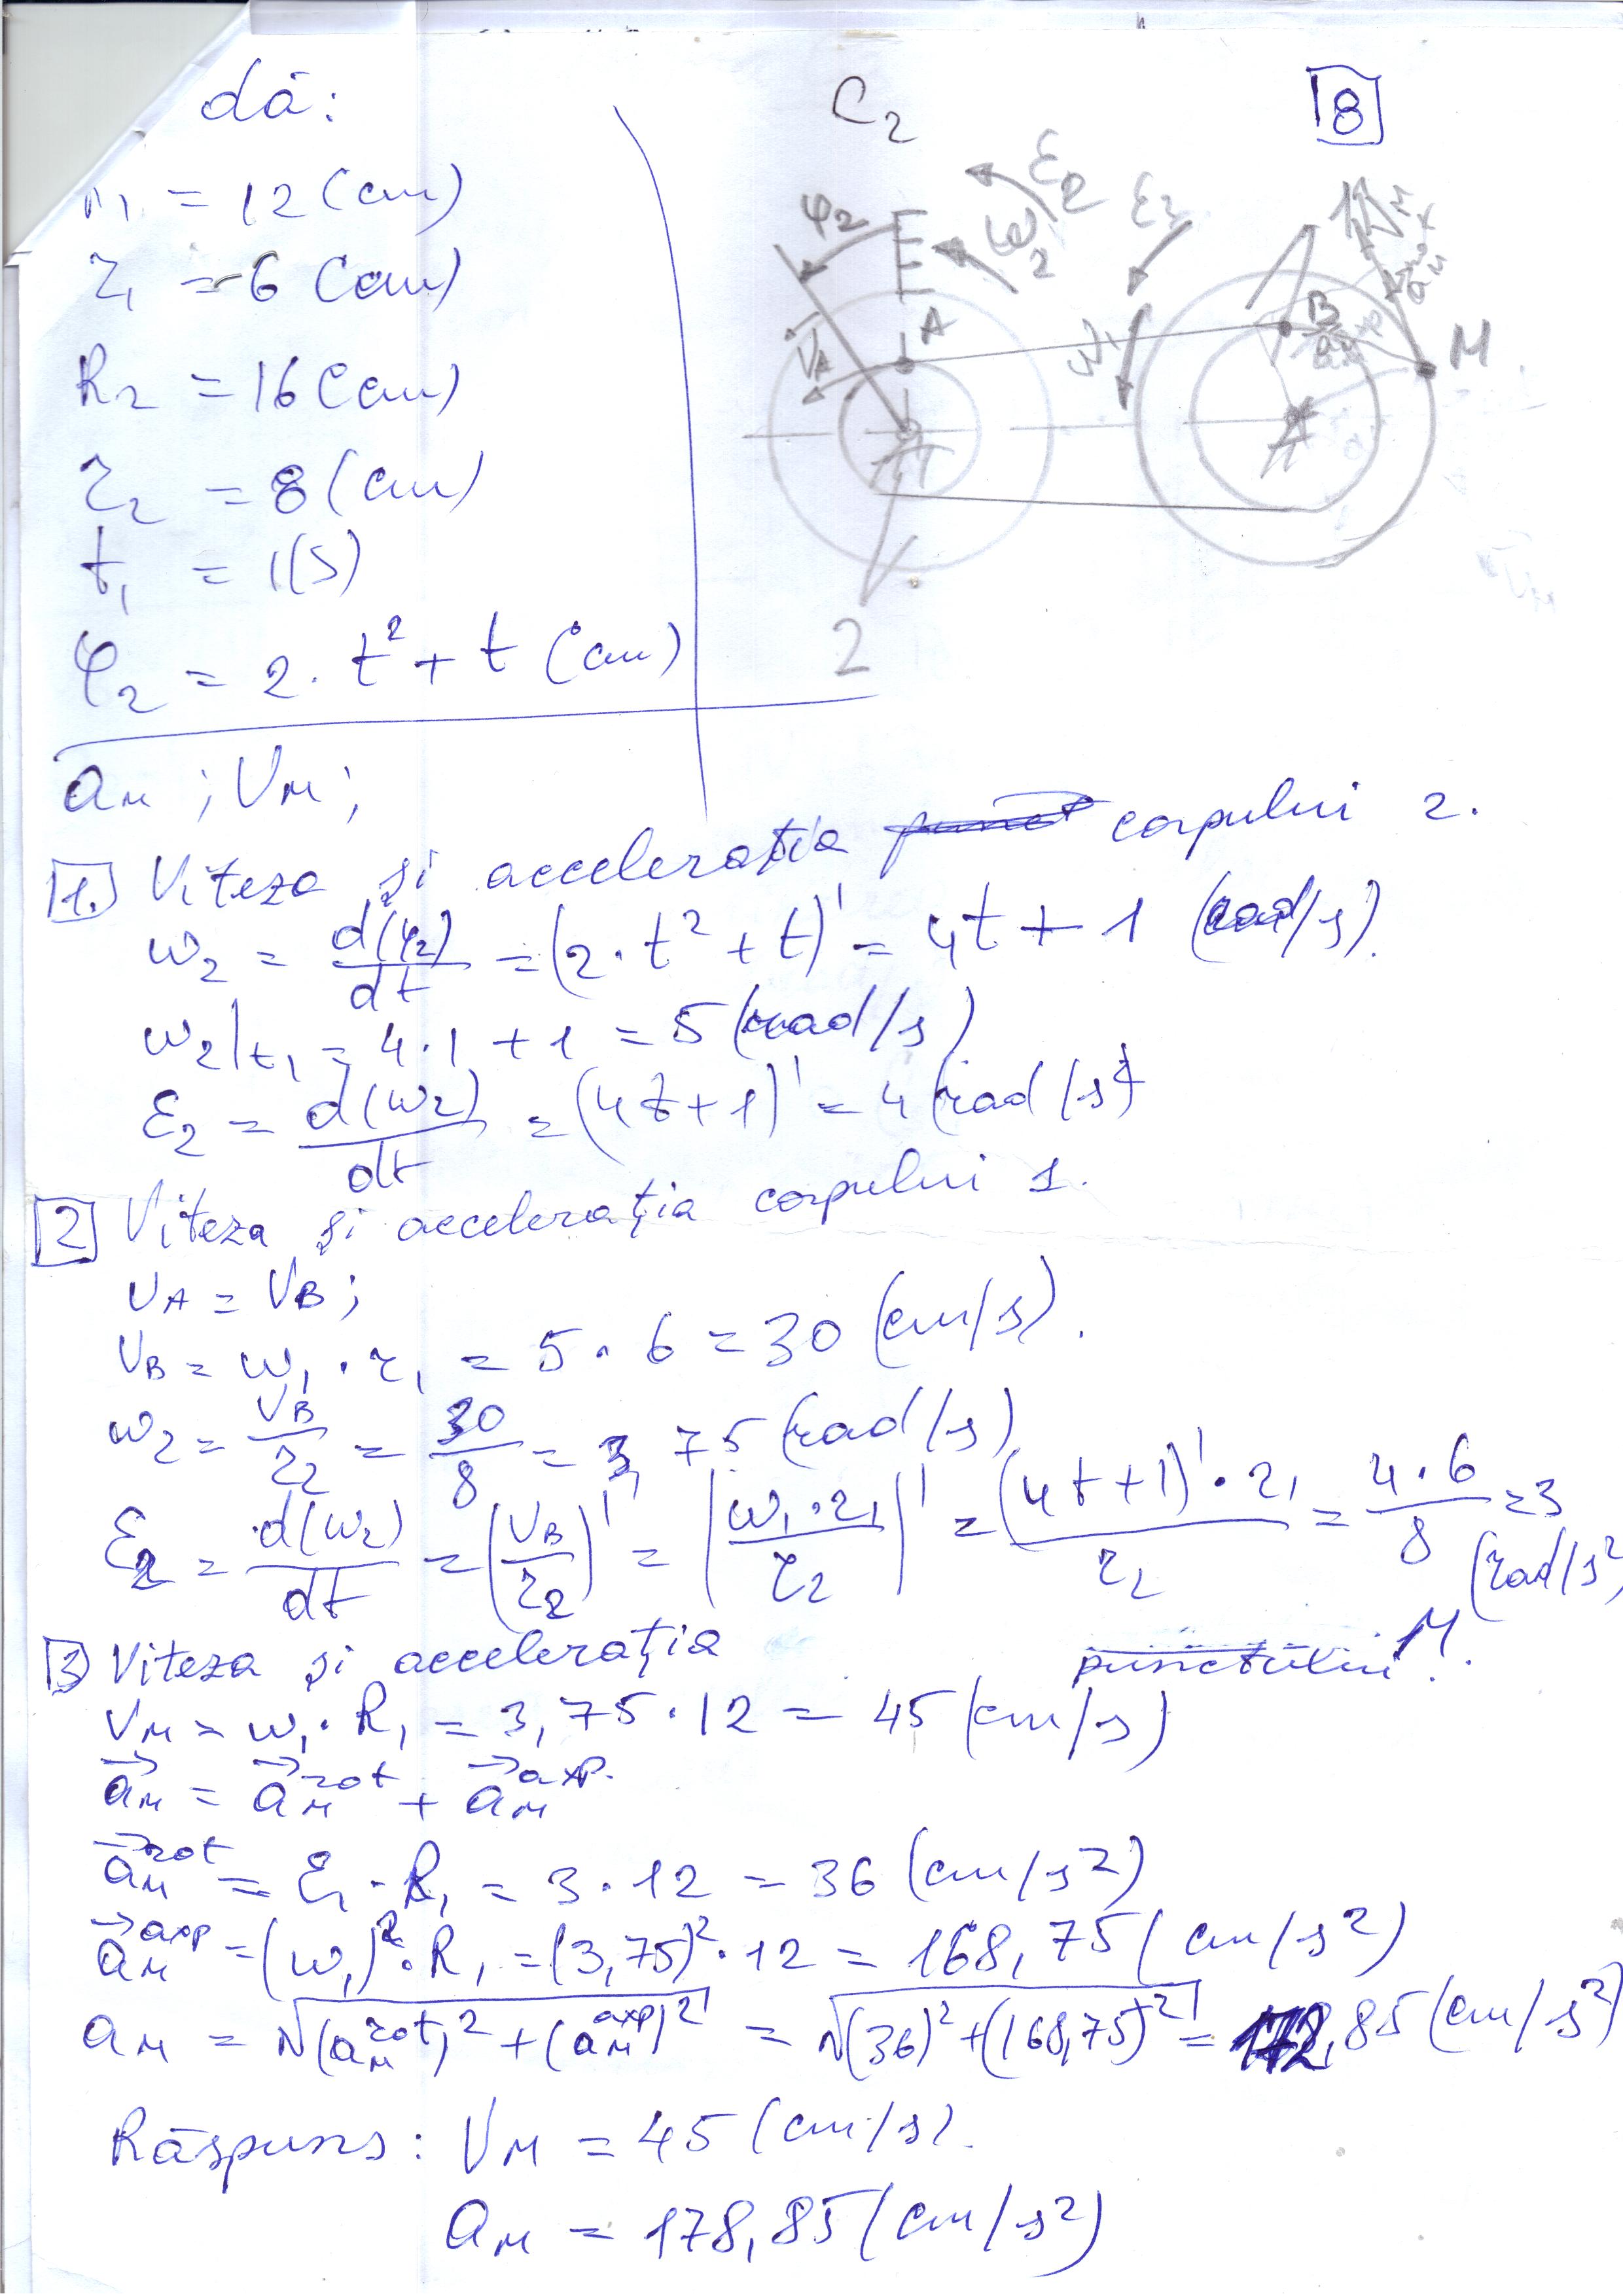 dă:
C₂
8
R₁ = 12 (cm)
r₁ = 6 (cm)
R₂ = 16 (cm)
r₂ = 8 (cm)
t₁ = 1(s)
φ₂ = 2 · t² + t (cm)
φ₂
ε₂
ω₂
V_A
A
B
M
1
2
a_M ; V_M ;
1. Viteza și accelerația corpului 2.
ω₂ = d(φ₂)/dt = (2 · t² + t)' = 4t + 1 (rad/s).
ω₂|t₁ = 4 · 1 + 1 = 5 (rad/s)
ε₂ = d(ω₂)/dt = (4t + 1)' = 4 (rad/s²
2 Viteza și accelerația corpului 1.
V_A = V_B ;
V_B = ω₁ · r₁ = 5 · 6 = 30 (cm/s).
ω₂ = V_B/r₂ = 30/8 = 3,75 (rad/s)
ε₂ = d(ω₂)/dt = (V_B/r₂)' = |ω₁ · r₁/r₂|' = (4t + 1)' · r₁/r₂ = 4 · 6/8 = 3 (rad/s²
3 Viteza și accelerația punctului M.
V_M = ω₁ · R₁ = 3,75 · 12 = 45 (cm/s)
a⃗_M = a⃗_M^rot + a⃗_M^axp.
a⃗_M^rot = ε₁ · R₁ = 3 · 12 = 36 (cm/s²)
a⃗_M^axp = (ω₁)² · R₁ = (3,75)² · 12 = 168,75 (cm/s²)
a_M = √(a_M^rot)² + (a_M^axp)² = √(36)² + (168,75)² = 172,85 (cm/s²)
Răspuns: V_M = 45 (cm/s).
a_M = 178,85 (cm/s²)